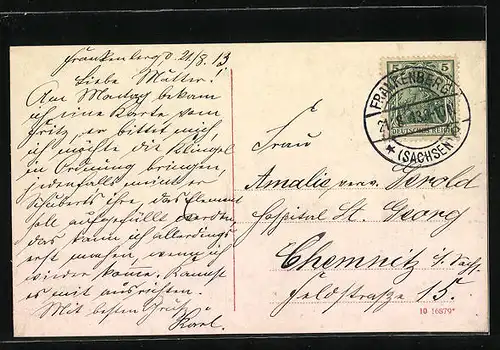 Frankenberg d 21/8.13
Liebe Mutter!
Am Montag bekam
ich eine Karte vom
Fritz, er bittet mich
ich möchte die Klingel
in Ordnung bringen,
jedenfalls meint er
Schuberts ihre, das Element
soll aufgefüllt werden,
das kann ich allerdings
erst machen, wenn ich
wieder komme. Kannst
es mit ausrichten.
Mit besten Gruß
Karl.
Frau
Amalie verw. Gerold
Hospital St. Georg
Chemnitz i. Sach.
Feldstraße 15.
5
DEUTSCHES REICH
FRANKENBERG
* (SACHSEN)
10 16879*